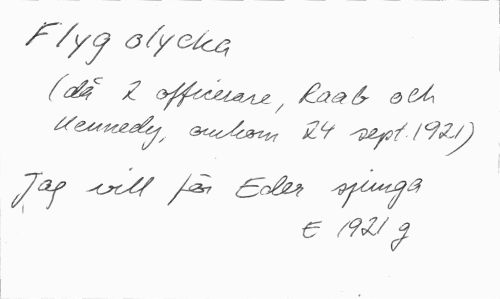 Flyg olycka
(då 2 officerare, Raab och
Kennedy, omkom 24 sept. 1921)
Jag vill för Eder sjunga
E 1921 g